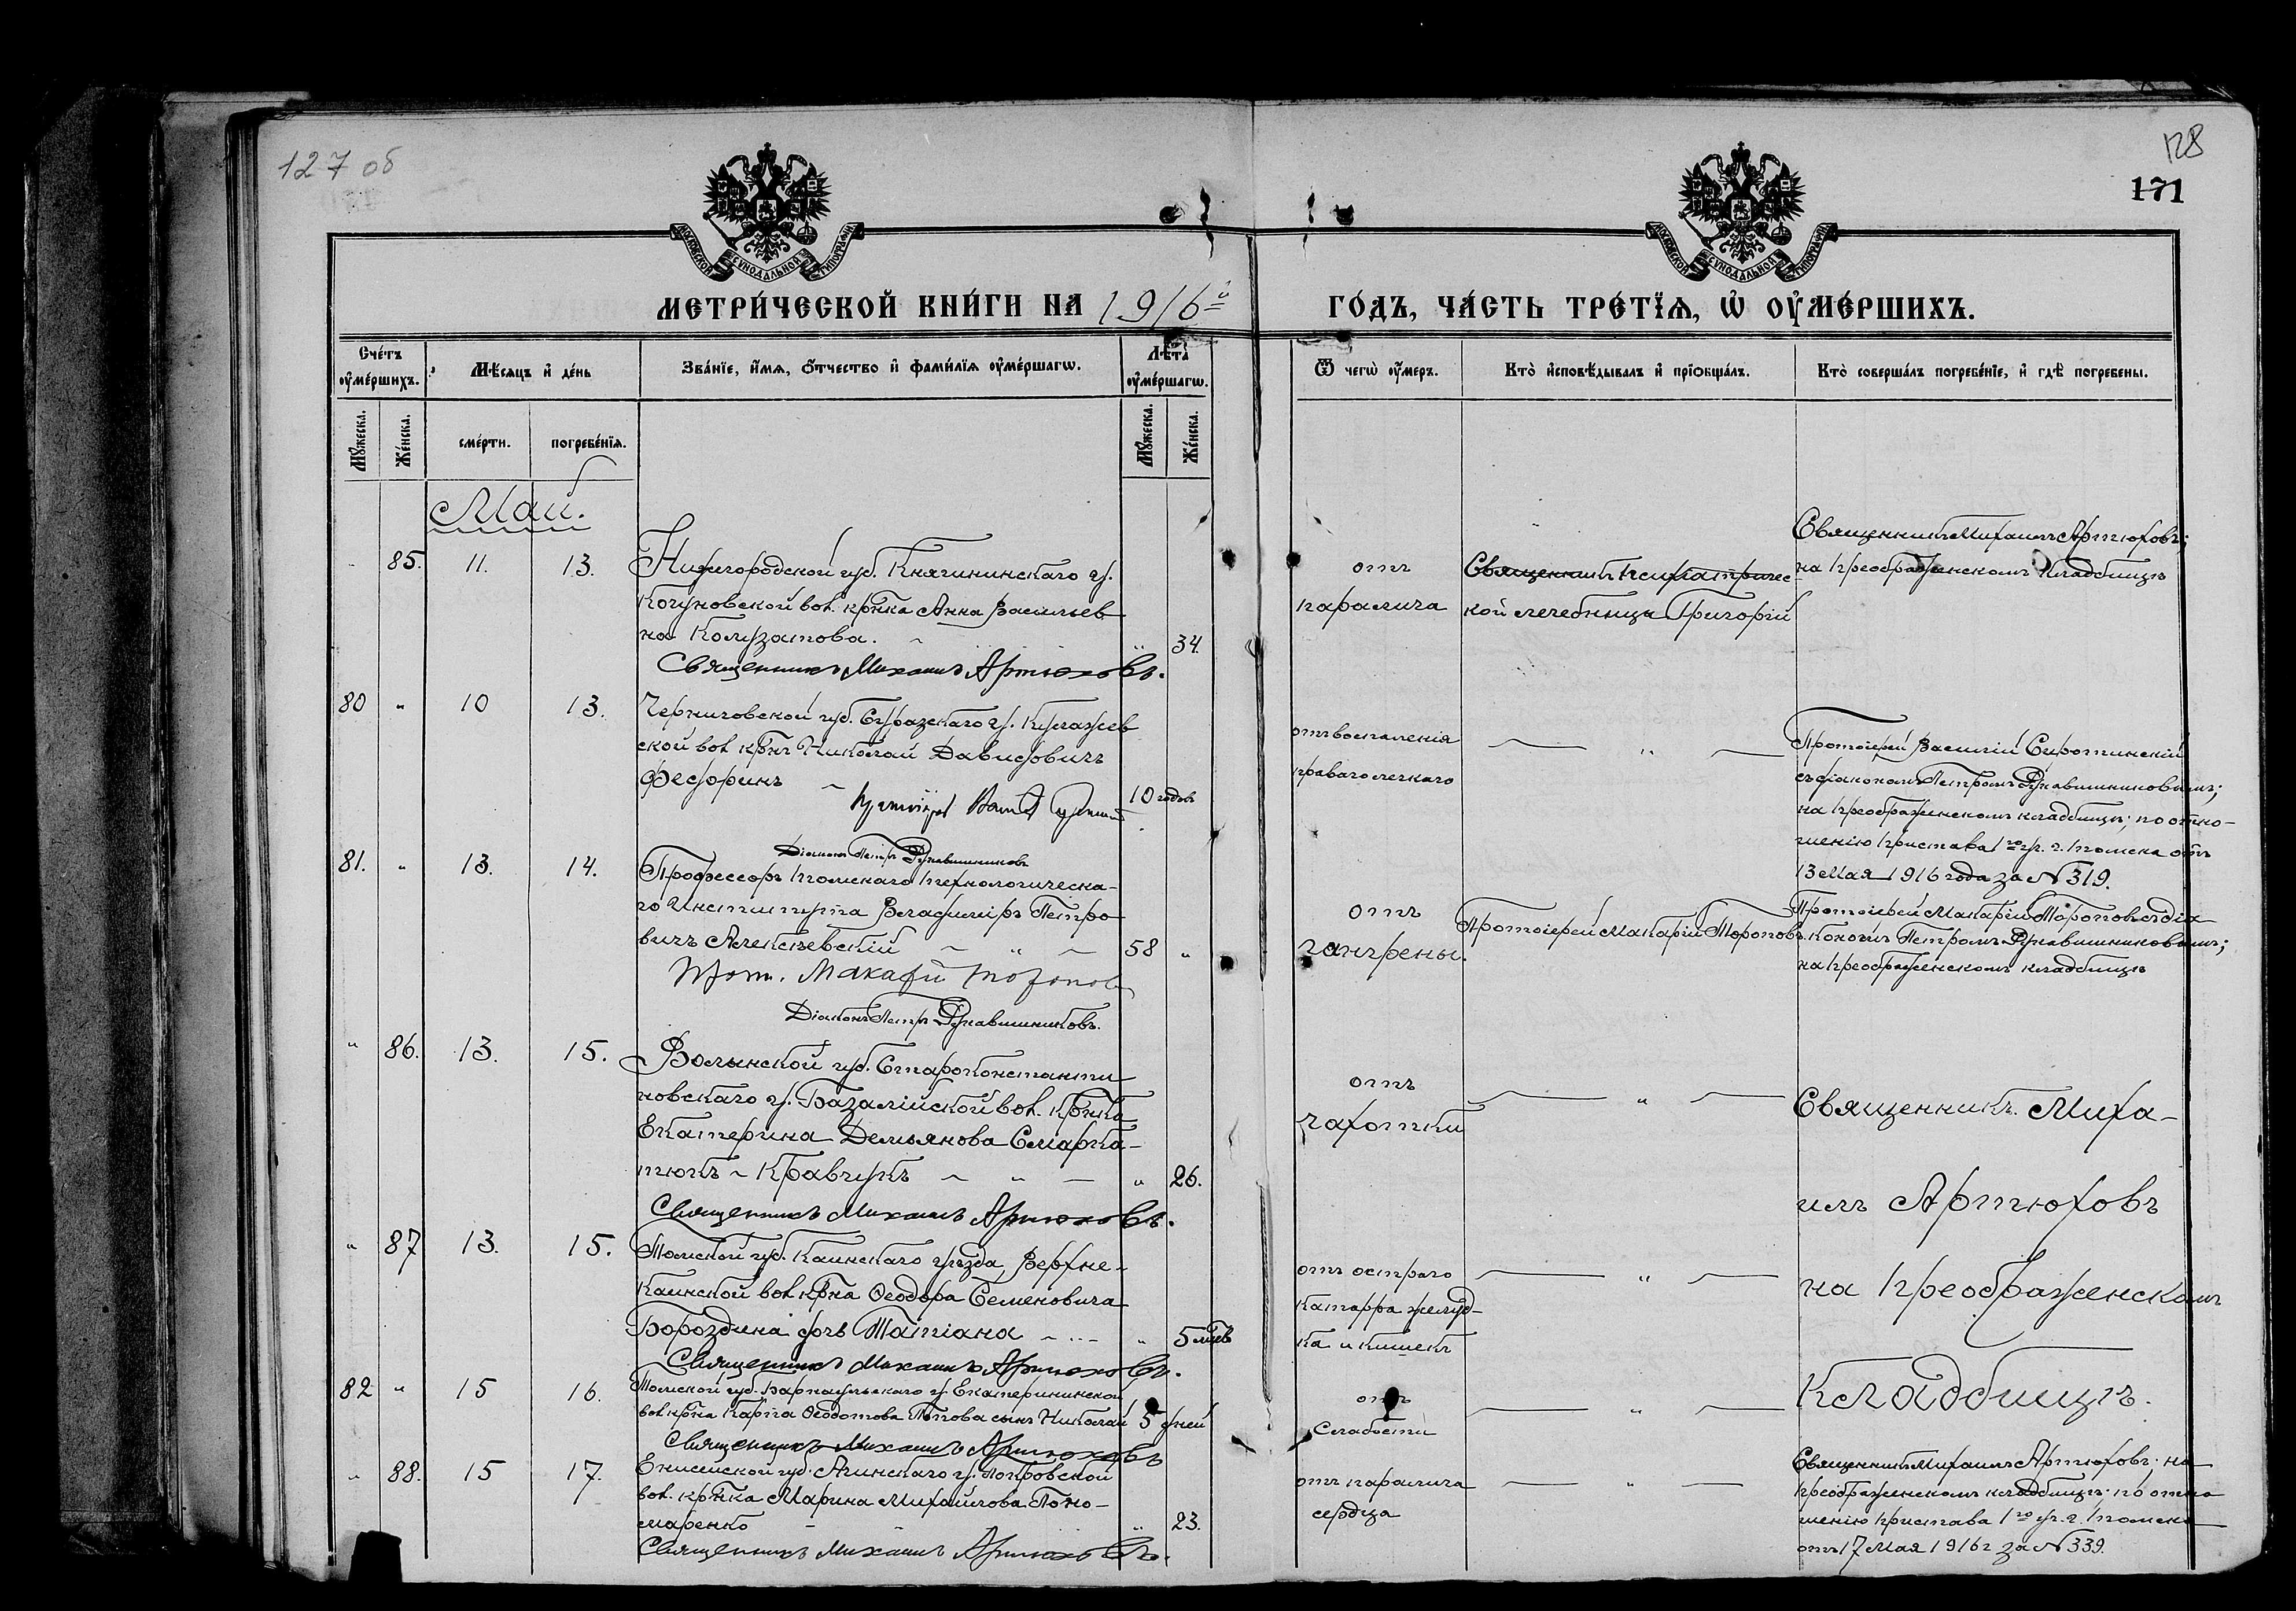 127 об
128
171
МОСКОВСКОЙ СѴНОДАЛЬНОЙ ТИПОГРАФІИ
МОСКОВСКОЙ СѴНОДАЛЬНОЙ ТИПОГРАФІИ
МЕТРИ́ЧЕСКОЙ КНИ́ГИ НА 1916й ГО́ДЪ, ЧА́СТЬ ТРЕ́ТЇѦ, Ѡ҆ ОУ҆МЕ́РШИХЪ.
Сче́тъ оу҆ме́ршихъ.
Мѣ́сяцъ и҆ де́нь
Зва́нїе, и҆́мѧ, ѻ҆́тчество и҆ фами́лїѧ оу҆ме́ршагѡ.
Лѣ́та оу҆ме́ршагѡ.
Ѿ чегѡ̀ оу҆́меръ.
Кто̀ и҆сповѣ́дывалъ и҆ прїѻбща́лъ.
Кто̀ соверша́лъ погребе́нїе, и҆ гдѣ̀ погребены.
Мꙋ́жеска.
Же́нска.
сме́рти.
погребе́нїѧ.
Мꙋ́жеска.
Же́нска.
Май.
85. 11. 13. Нижегородской губ. Княгининскаго у.
вол. крнка Анна Васильев
на
" 34.
Священникъ Михаилъ Артюховъ.
отъ
паралича
Священникъ Психіатричес
кой лечебницы Григорій
Священникъ Михаилъ Артюховъ;
на Преображенскомъ кладбищѣ
80 " 10 13. Черниговской губ. Суражскаго у. Кулажев
ской вол. крнъ Николай Давидовичъ
Федоринъ
10 годовъ
Діаконъ Петръ Рукавишниковъ
отъ воспаленія
праваго легкаго
"
Протоіерей Василій Сиротинскій
съ діакономъ Петромъ Рукавишниковымъ;
на Преображенскомъ кладбищѣ; по отно-
шенію Пристава 1го уч. г. Томска отъ
13 Мая 1916 года за № 319.
81. " 13. 14. Профессоръ Томскаго Технологическа-
го Института Владиміръ Петро
вичъ Алексѣевскій " 58 "
Прот. Макарій Торопов
Діаконъ Петръ Рукавишниковъ.
отъ
гангрены.
Протоіерей Макарій Торопов
Протоіерей Макарій Тороповъ съ діа
кономъ Петромъ Рукавишниковымъ;
на Преображенскомъ кладбищѣ
" 86. 13. 15. Волынской губ. Староконстанти
новскаго у. Базалійской вол. крнка
Екатерина Демьянова
Кравчукъ " " 26.
Священникъ Михаилъ Артюховъ.
отъ
чахотки
"
Священникъ Миха-
илъ Артюховъ
на Преображенскомъ
Кладбищѣ.
" 87 13. 15. Томской губ. Каинскаго уѣзда, Верхне-
Каинской вол. крна Ѳеодора Семеновича
Бороздина дочь Татіана " 5 мцевъ
Священникъ Михаилъ Артюховъ.
отъ остраго
катарра желуд-
ка и кишекъ
"
82 " 15 16. Томской губ. Барнаульскаго у. Екатерининской
вол. крна Карпа Ѳеодотова Попова сынъ Николай 5 дней
Священникъ Михаилъ Артюховъ
отъ
слабости
"
" 88. 15 17. Енисейской губ. Ачинскаго у. Покровской
вол. крнка Марина Михайлова Поно-
маренко " 23.
Священникъ Михаилъ Артюховъ.
отъ паралича
сердца
"
Священникъ Михаилъ Артюховъ. на
Преображенскомъ кладбищѣ. по отно
шенію Пристава 1го уч. г. Томска
отъ 17 Мая 1916 г за № 339.